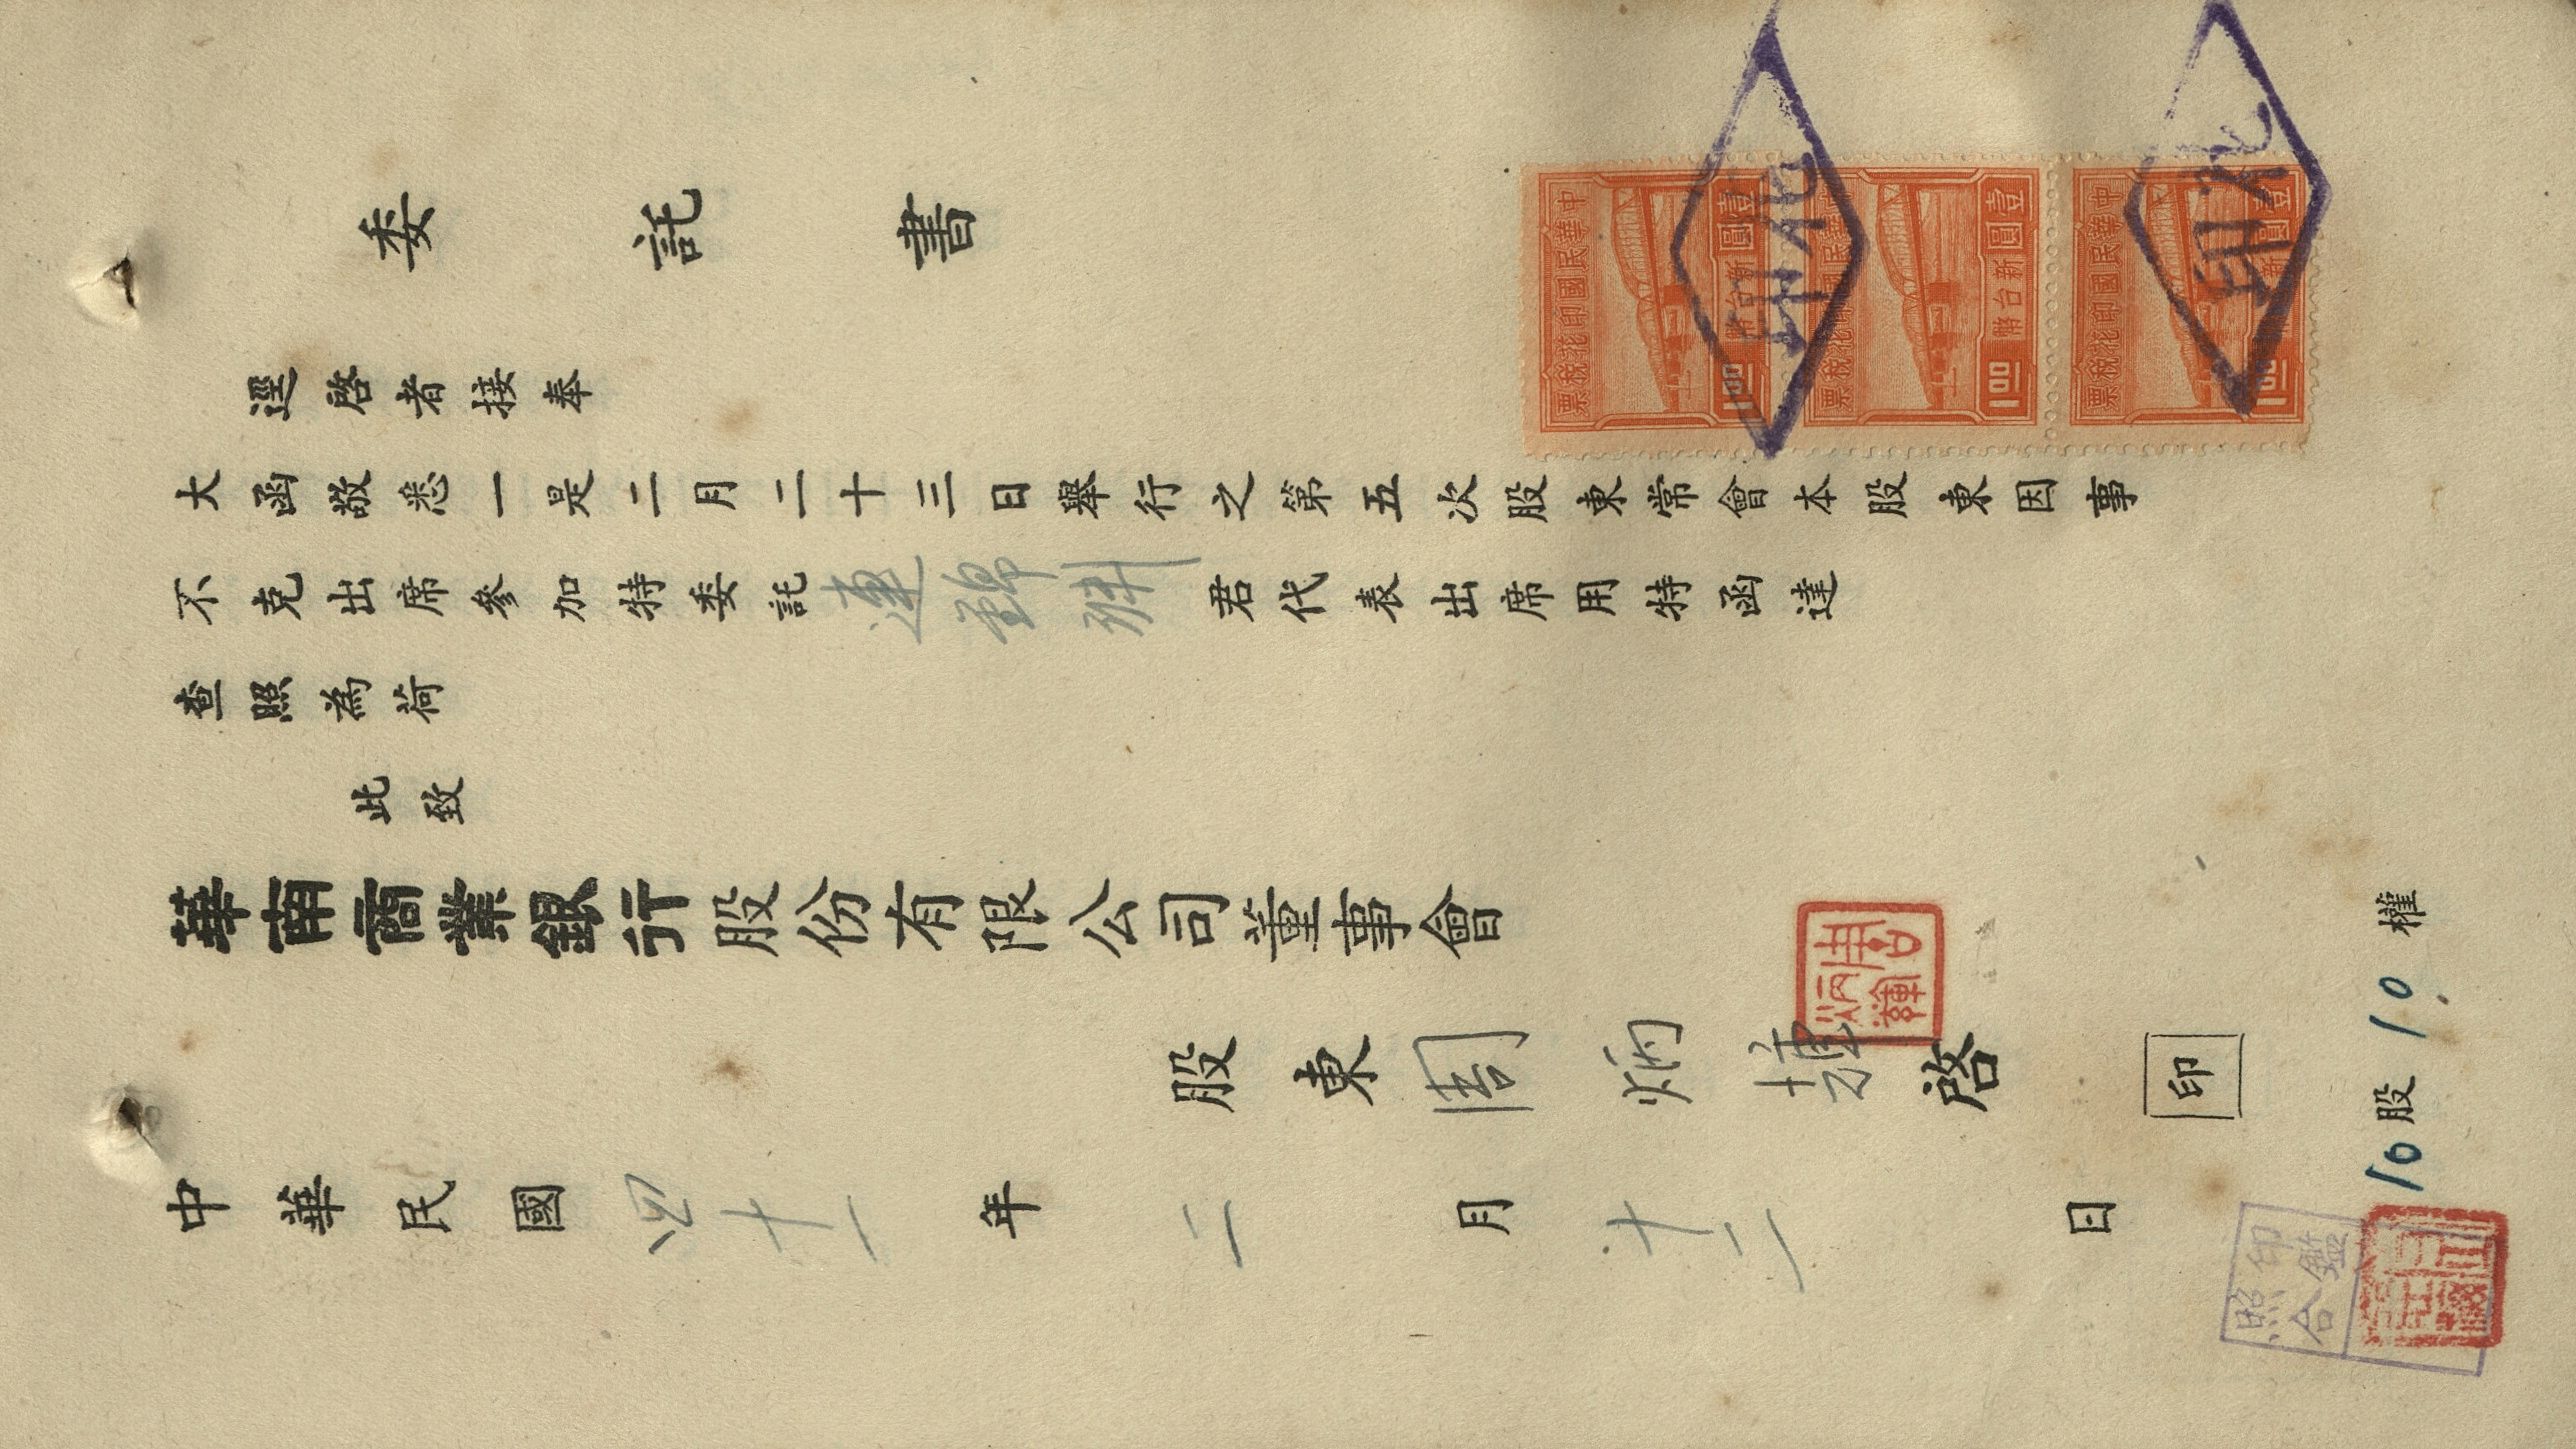 委託書
逕啓者接奉
大函敬悉一是二月二十三日舉行之第五次股東常會本股東因事
不克出席參加特委託連錦君代表出席用特函達
查照為荷
此致
華南商業銀行股份有限公司董事會
股東周炳啓 印
中華民國四十一年二月十二日
10股10權
印鑑照合
中華民國印花稅票
壹圓 新台幣 1.00
中華民國印花稅票
壹圓 新台幣 1.00
中華民國印花稅票
壹圓 新台幣 1.00